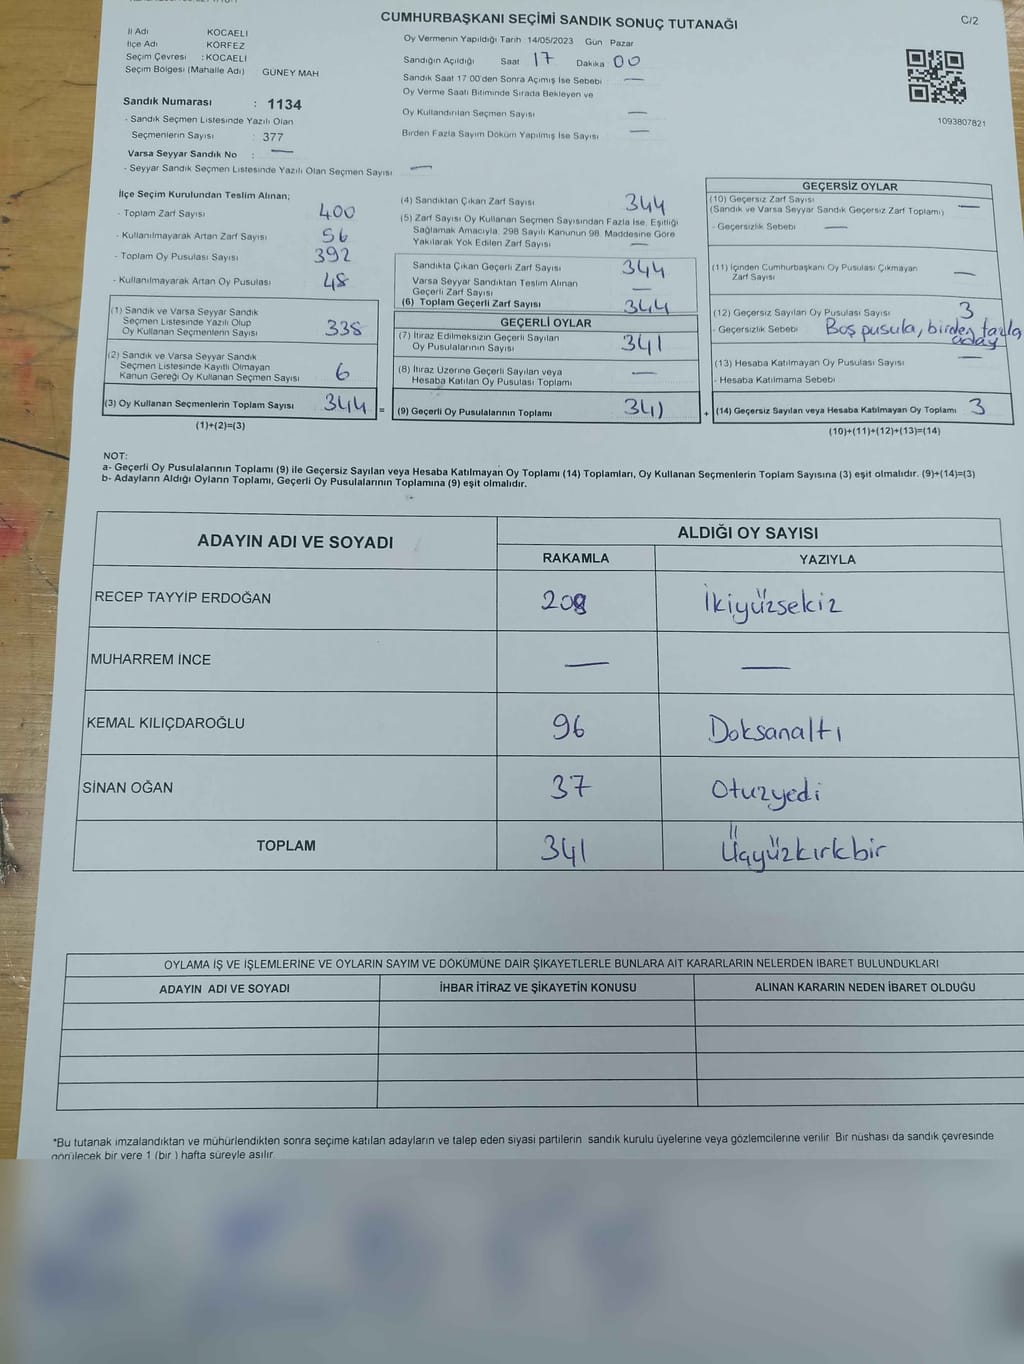 CUMHURBAŞKANI SEÇİMİ SANDIK SONUÇ TUTANAĞI
C/2
İl Adı KOCAELİ
İlçe Adı KÖRFEZ
Seçim Çevresi : KOCAELİ
Seçim Bölgesi (Mahalle Adı) GÜNEY MAH
Oy Vermenin Yapıldığı Tarih 14/05/2023 Gün Pazar
Sandığın Açıldığı Saat 17 Dakika 00
Sandık Saat 17 00'den Sonra Açımış İse Sebebi —
Oy Verme Saati Bitiminde Sırada Bekleyen ve
Oy Kullandırılan Seçmen Sayısı —
Birden Fazla Sayım Döküm Yapılmış İse Sayısı —
1093807821
Sandık Numarası : 1134
- Sandık Seçmen Listesinde Yazılı Olan
Seçmenlerin Sayısı : 377
Varsa Seyyar Sandık No : —
- Seyyar Sandık Seçmen Listesinde Yazılı Olan Seçmen Sayısı —
İlçe Seçim Kurulundan Teslim Alınan;
- Toplam Zarf Sayısı 400
- Kullanılmayarak Artan Zarf Sayısı 56
- Toplam Oy Pusulası Sayısı 392
- Kullanılmayarak Artan Oy Pusulası 48
(1) Sandık ve Varsa Seyyar Sandık
Seçmen Listesinde Yazılı Olup
Oy Kullanan Seçmenlerin Sayısı 338
(2) Sandık ve Varsa Seyyar Sandık
Seçmen Listesinde Kayıtlı Olmayan
Kanun Gereği Oy Kullanan Seçmen Sayısı 6
(3) Oy Kullanan Seçmenlerin Toplam Sayısı 344 =
(1)+(2)=(3)
(4) Sandıktan Çıkan Zarf Sayısı 344
(5) Zarf Sayısı Oy Kullanan Seçmen Sayısından Fazla İse, Eşitliği
Sağlamak Amacıyla, 298 Sayılı Kanunun 98. Maddesine Göre
Yakılarak Yok Edilen Zarf Sayısı —
Sandıkta Çıkan Geçerli Zarf Sayısı 344
Varsa Seyyar Sandıktan Teslim Alınan
Geçerli Zarf Sayısı —
(6) Toplam Geçerli Zarf Sayısı 344
GEÇERLİ OYLAR
(7) İtiraz Edilmeksizin Geçerli Sayılan
Oy Pusulalarının Sayısı 341
(8) İtiraz Üzerine Geçerli Sayılan veya
Hesaba Katılan Oy Pusulası Toplamı —
(9) Geçerli Oy Pusulalarının Toplamı 341 +
GEÇERSİZ OYLAR
(10) Geçersiz Zarf Sayısı —
(Sandık ve Varsa Seyyar Sandık Geçersiz Zarf Toplamı)
- Geçersizlik Sebebi —
(11) İçinden Cumhurbaşkanı Oy Pusulası Çıkmayan
Zarf Sayısı —
(12) Geçersiz Sayılan Oy Pusulası Sayısı 3
- Geçersizlik Sebebi Boş pusula, birden fazla
aday
(13) Hesaba Katılmayan Oy Pusulası Sayısı —
- Hesaba Katılmama Sebebi
(14) Geçersiz Sayılan veya Hesaba Katılmayan Oy Toplamı 3
(10)+(11)+(12)+(13)=(14)
NOT:
a- Geçerli Oy Pusulalarının Toplamı (9) ile Geçersiz Sayılan veya Hesaba Katılmayan Oy Toplamı (14) Toplamları, Oy Kullanan Seçmenlerin Toplam Sayısına (3) eşit olmalıdır. (9)+(14)=(3)
b- Adayların Aldığı Oyların Toplamı, Geçerli Oy Pusulalarının Toplamına (9) eşit olmalıdır.
ADAYIN ADI VE SOYADI ALDIĞI OY SAYISI
RAKAMLA YAZIYLA
RECEP TAYYİP ERDOĞAN 208 İkiyüzsekiz
MUHARREM İNCE — —
KEMAL KILIÇDAROĞLU 96 Doksanaltı
SİNAN OĞAN 37 Otuzyedi
TOPLAM 341 Üçyüzkırkbir
OYLAMA İŞ VE İŞLEMLERİNE VE OYLARIN SAYIM VE DÖKÜMÜNE DAİR ŞİKAYETLERLE BUNLARA AİT KARARLARIN NELERDEN İBARET BULUNDUKLARI
ADAYIN ADI VE SOYADI İHBAR İTİRAZ VE ŞİKAYETİN KONUSU ALINAN KARARIN NEDEN İBARET OLDUĞU
*Bu tutanak imzalandıktan ve mühürlendikten sonra seçime katılan adayların ve talep eden siyasi partilerin sandık kurulu üyelerine veya gözlemcilerine verilir Bir nüshası da sandık çevresinde
görülecek bir yere 1 (bir ) hafta süreyle asılır